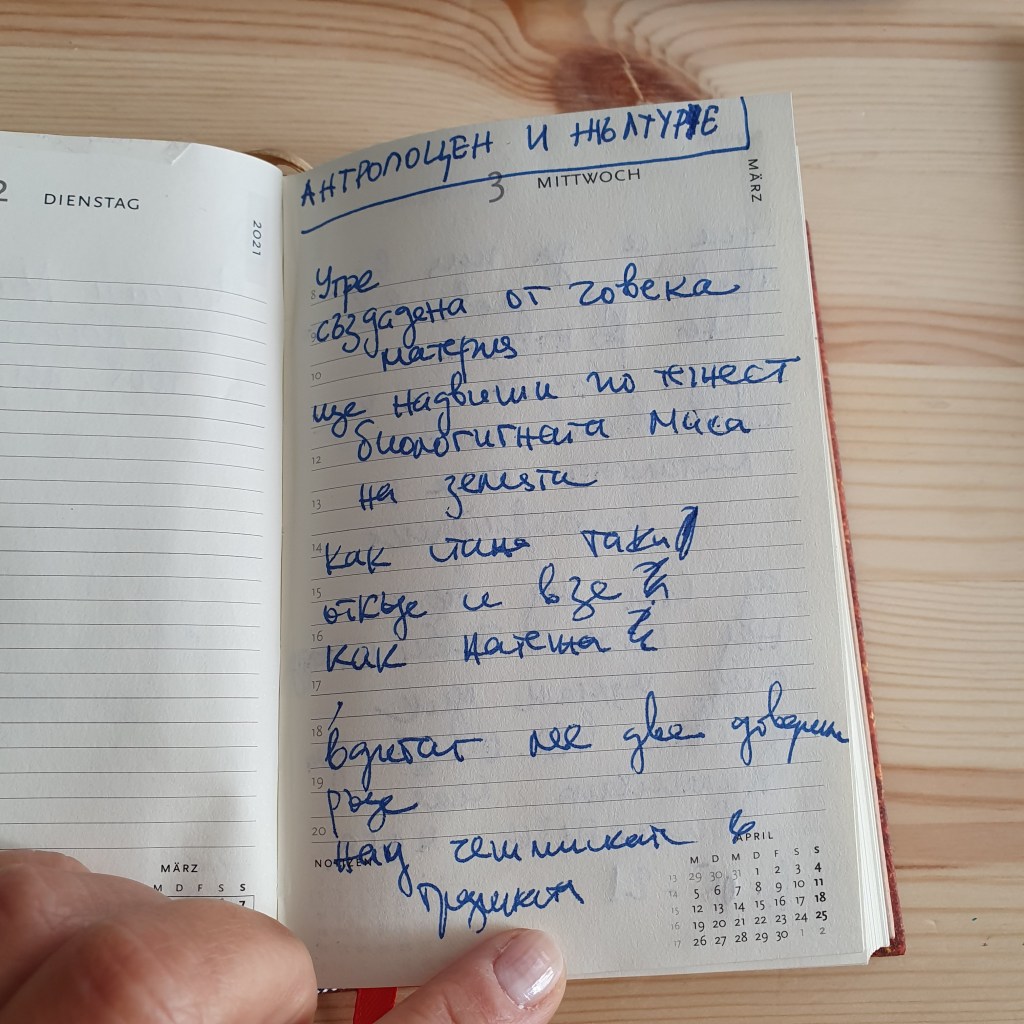 2 DIENSTAG
2021
MÄRZ
M D F S S
7
АНТРОПОЦЕН И ЖЪЛТУРЧЕ
3 MITTWOCH
MÄRZ
Утре
създадена от човека
материя
ще надвиши по тежест
биологичната маса
на земята
как стана така
откъде и взе
как натежа
вдигат ме две доверени
ръце
над чешмиката в
тревиката
8
10
12
13
14
15
16
17
18
19
20
NOTIZEN
APRIL
M D M D F S S
13 29 30 31 1 2 3 4
14 5 6 7 8 9 10 11
15 12 13 14 15 16 17 18
16 19 20 21 22 23 24 25
17 26 27 28 29 30 1 2